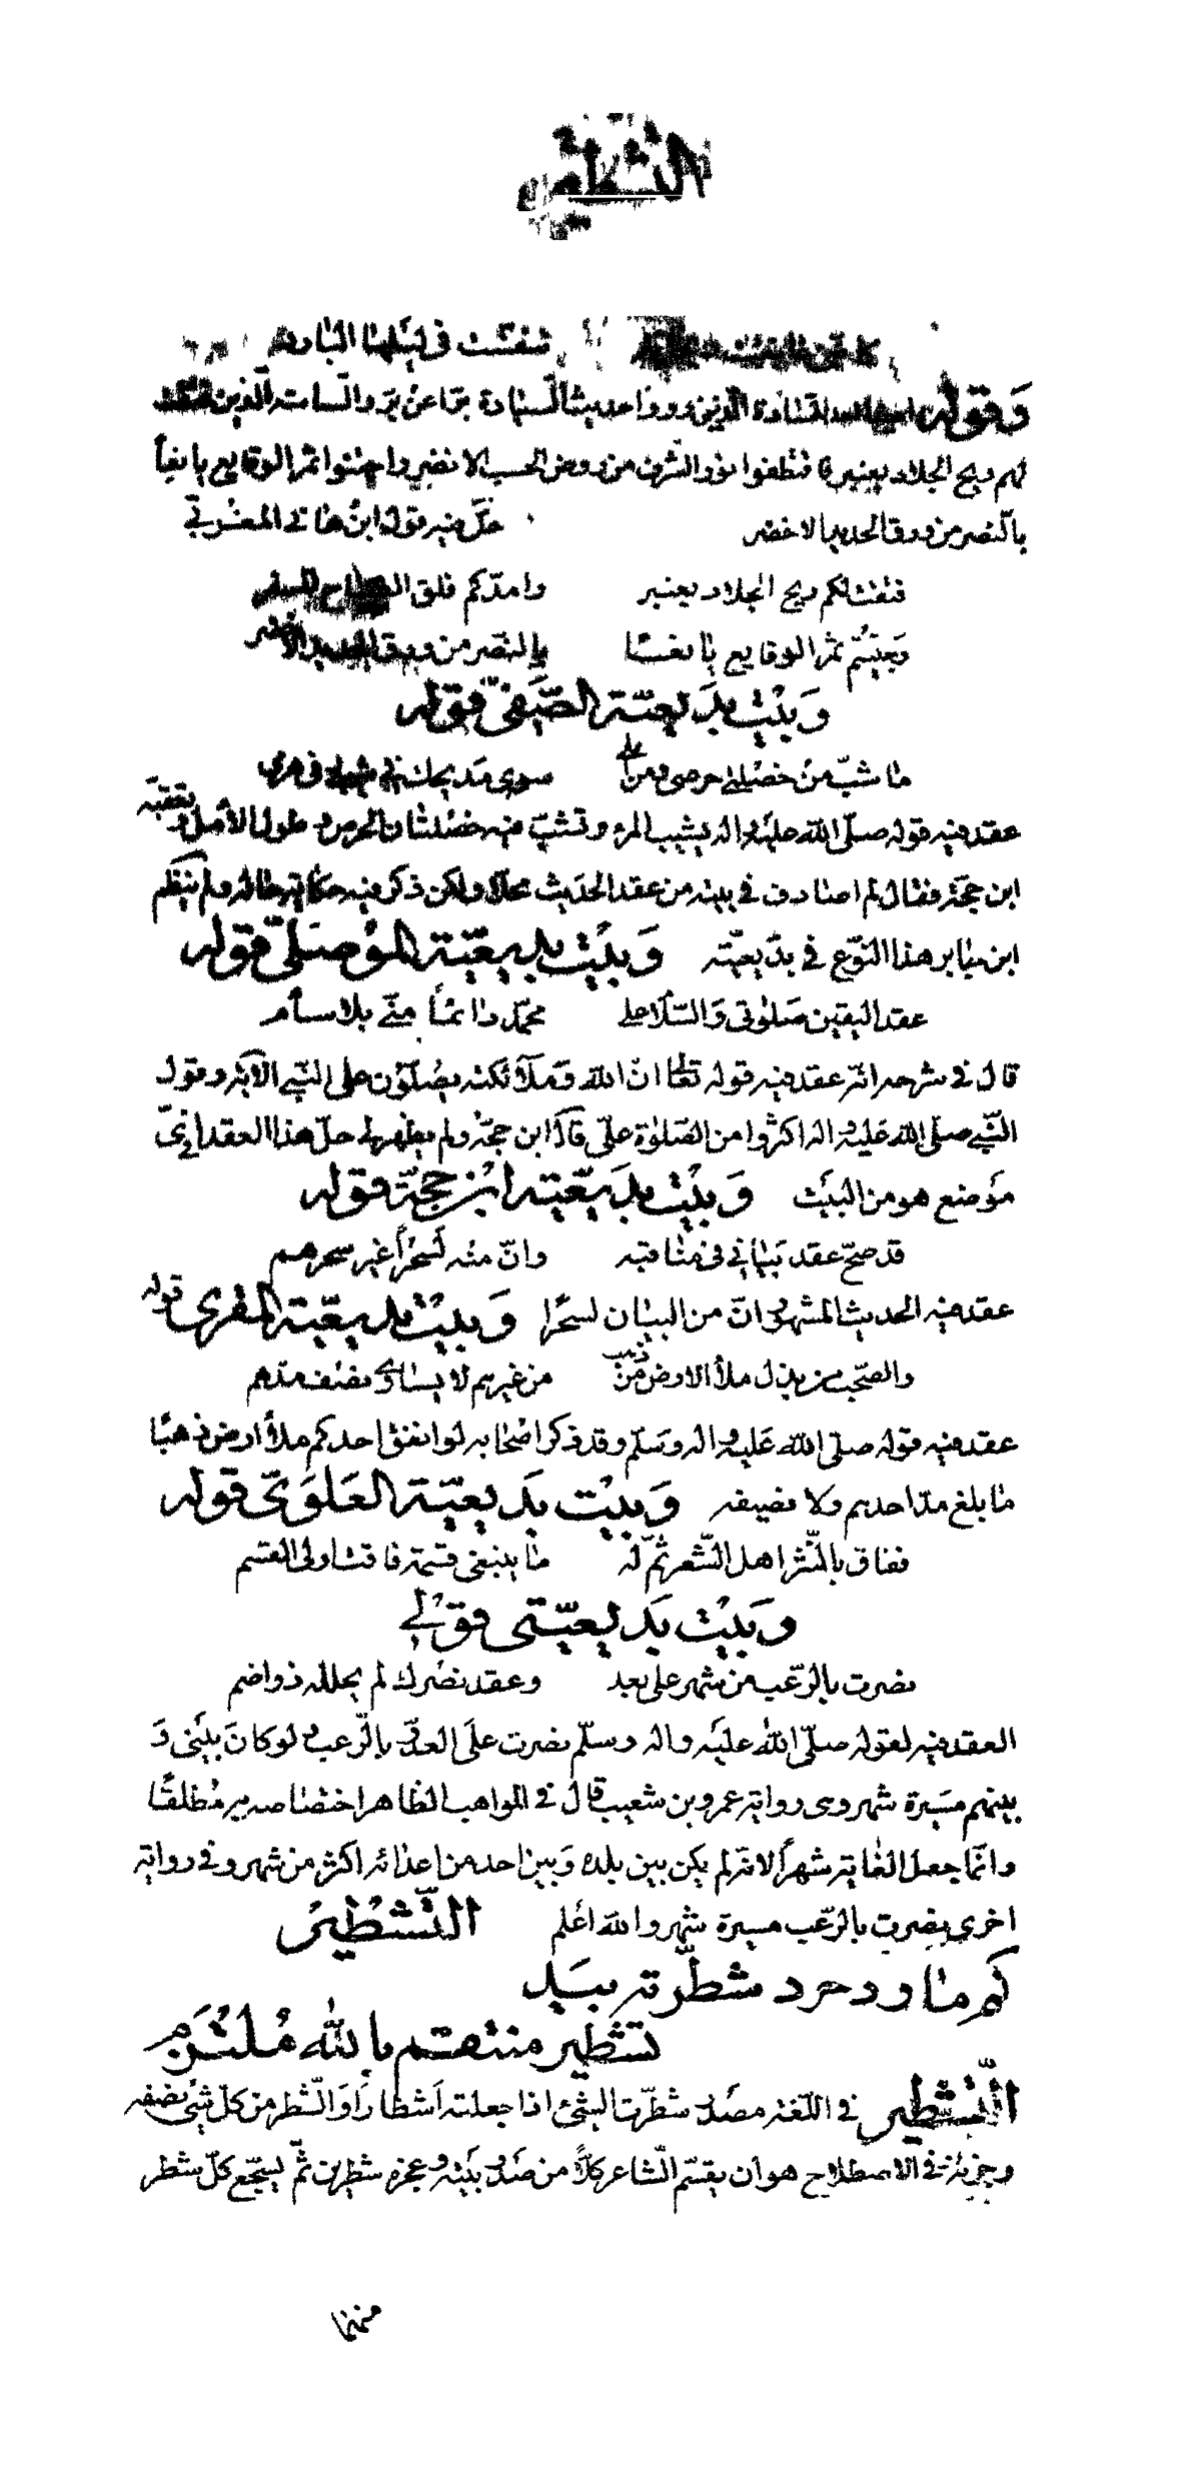 التشطير
فنفثت في ليلها البارد
وقوله القادة الذين رووا حديث السيادة برا عن بر والساسة الذين فتقت
لهم ريح الجلاد بعنبر فقطفوا نور الشرف من روض الحسب الانضر واجتنوا ثمر الوقايع يانعاً
بالنصر من ورق الحديد الاخضر حلّ فيه قول ابن هانى المغربي
فتقت لكم ريح الجلاد بعنبر وامدّكم فلق الصباح المسفر
وجنيتم ثمر الوقايع يانعا بالنصر من ورق الحديد الاخضر
وبيت بديعية الصفي قوله
ما شبّ من خصلتي حرصي ومن املي سوى مديحك في شيبي وفي هرمي
عقد فيه قوله صلّى الله عليه واله يشيب المرء وتشبّ فيه خصلتان الحرص وطول الأمل وتعقبه
ابن حجّة فقال لم اصادف في بيته من عقد الحديث محلا ولكن ذكر فيه حكاية حاله ولم ينظم
ابن جابر هذا النوّع في بديعيته وبيت بديعيّة الموصلي قوله
عقد اليقين صلوتي والسّلام على محمّد دائماً منّي بلا سأم
قال في شرحه انّه عقد فيه قوله تعالى انّ الله وملآئكته يصلّون على النّبي الآية وقول
النّبي صلى الله عليه واله اكثروا من الصّلوة عليّ قال ابن حجّة ولم يظهر لي حلّ هذا العقد في ايّ
موضع هو من البيت وبيت بديعيّته ابن حجّة قوله
قد صحّ عقد بياني في مناقبه وانّ منه لسحراً غير سحرهم
عقد فيه الحديث المشهور انّ من البيان لسحرًا وبيت بديعيّة المقري قوله
والصّحب من يبذل ملأ الارض من ذهب من غيرهم لا يساوي نصف مدّهم
عقد فيه قوله صلى الله عليه واله وسلّم وقد ذكر اصحابه لو انفق احدكم ملأ ارض ذهبًا
ما بلغ مدّ احدهم ولا نصيفه وبيت بديعيّة العلويّ قوله
ففاق بالنّثر اهل الشّعر ثمّ له ما ينبغي قسمة فاقت اولى القسم
وبيت بديعيّتي قولي
نصرت بالرّعب من شهر على بعد وعقد نصرك لم يحلله ذو اضم
العقد فيه لقوله صلّى الله عليه واله وسلّم نصرت على العدوّ بالرّعب ولو كان بيني و
بينهم مسيرة شهر وهى رواية عمرو بن شعيب قال في المواهب الظاهر اختصاصه به مطلقًا
وانّما جعل الغاية شهراً لانّه لم يكن بين بلده وبين احد من اعدائه اكثر من شهر وفي رواية
اخرى نصرت بالرّعب مسيرة شهر والله اعلم التّشطير
كم مارد حرد شطّرته بيد
تشطير منتقم بالله ملتزم
التّشطير في اللّغة مصدر شطّرت الشئ اذا جعلته اشطارا والشّطر من كلّ شئ نصفه
وجزئه وفي الاصطلاح هو ان يقسّم الشّاعر كلاًّ من صدر بيته وعجزه شطرين ثمّ يسجّع كلّ شطر
منهما